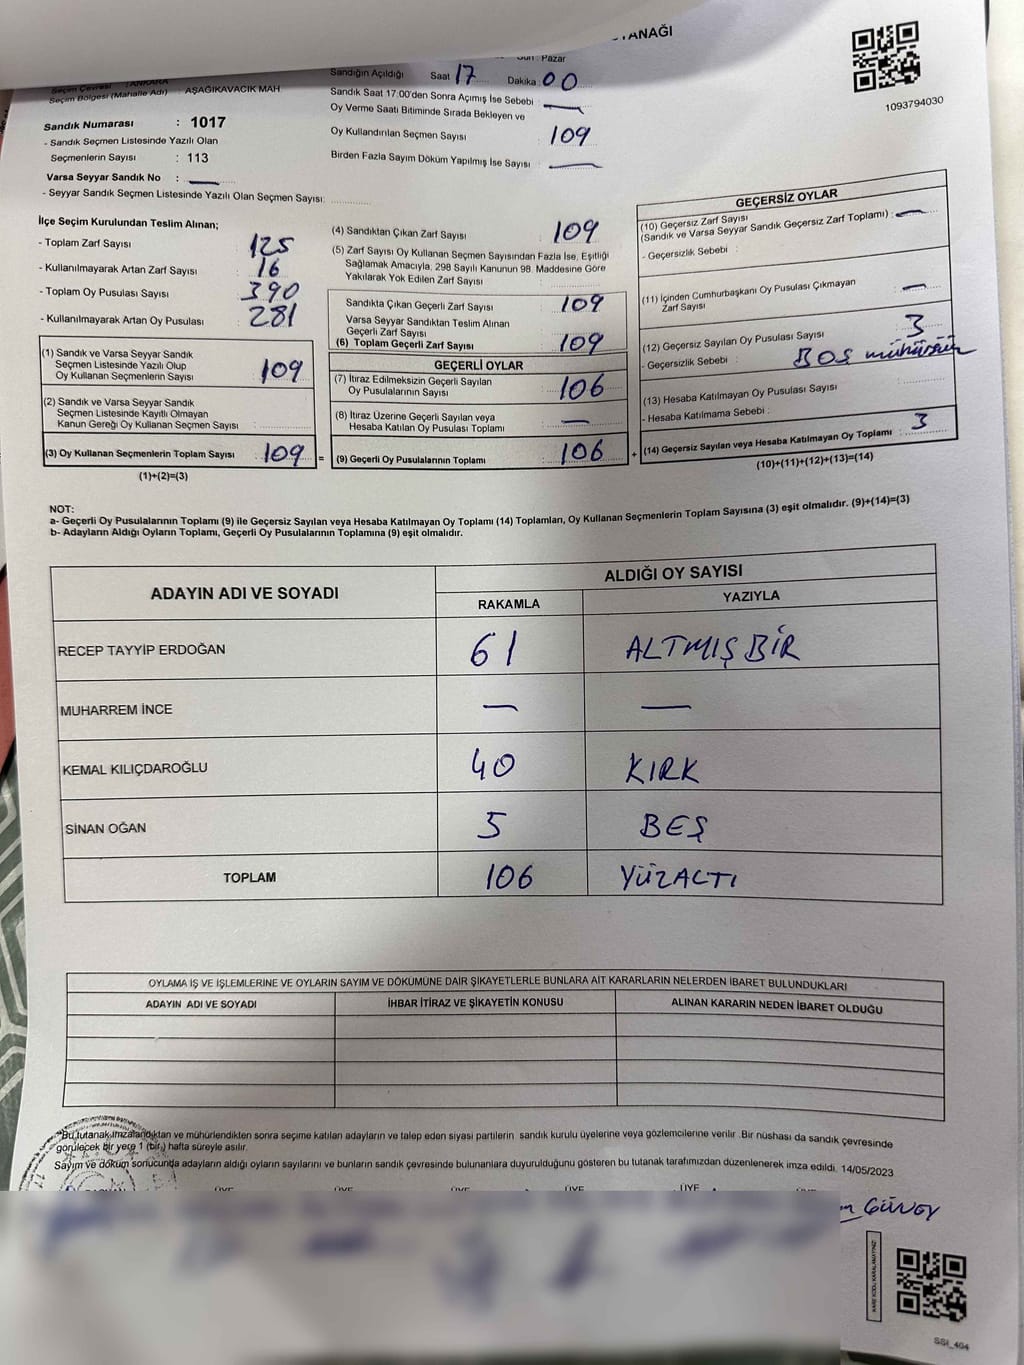 TANAĞI
Gün : Pazar
Sandığın Açıldığı Saat 17 Dakika 00
Sandık Saat 17:00'den Sonra Açımış İse Sebebi : —
Oy Verme Saati Bitiminde Sırada Bekleyen ve
Oy Kullandırılan Seçmen Sayısı : 109
Birden Fazla Sayım Döküm Yapılmış İse Sayısı : —
1093794030
Seçim Çevresi : ANKARA
Seçim Bölgesi (Mahalle Adı) : AŞAĞIKAVACIK MAH
Sandık Numarası : 1017
- Sandık Seçmen Listesinde Yazılı Olan
Seçmenlerin Sayısı : 113
Varsa Seyyar Sandık No : —
- Seyyar Sandık Seçmen Listesinde Yazılı Olan Seçmen Sayısı:
İlçe Seçim Kurulundan Teslim Alınan;
- Toplam Zarf Sayısı : 125
- Kullanılmayarak Artan Zarf Sayısı : 16
- Toplam Oy Pusulası Sayısı : 390
- Kullanılmayarak Artan Oy Pusulası : 281
(1) Sandık ve Varsa Seyyar Sandık
Seçmen Listesinde Yazılı Olup
Oy Kullanan Seçmenlerin Sayısı : 109
(2) Sandık ve Varsa Seyyar Sandık
Seçmen Listesinde Kayıtlı Olmayan
Kanun Gereği Oy Kullanan Seçmen Sayısı :
(3) Oy Kullanan Seçmenlerin Toplam Sayısı : 109 =
(1)+(2)=(3)
(4) Sandıktan Çıkan Zarf Sayısı : 109
(5) Zarf Sayısı Oy Kullanan Seçmen Sayısından Fazla İse, Eşitliği
Sağlamak Amacıyla, 298 Sayılı Kanunun 98. Maddesine Göre
Yakılarak Yok Edilen Zarf Sayısı :
Sandıkta Çıkan Geçerli Zarf Sayısı : 109
Varsa Seyyar Sandıktan Teslim Alınan
Geçerli Zarf Sayısı :
(6) Toplam Geçerli Zarf Sayısı : 109
GEÇERLİ OYLAR
(7) İtiraz Edilmeksizin Geçerli Sayılan
Oy Pusulalarının Sayısı : 106
(8) İtiraz Üzerine Geçerli Sayılan veya
Hesaba Katılan Oy Pusulası Toplamı : —
(9) Geçerli Oy Pusulalarının Toplamı : 106 +
GEÇERSİZ OYLAR
(10) Geçersiz Zarf Sayısı
(Sandık ve Varsa Seyyar Sandık Geçersiz Zarf Toplamı) : —
- Geçersizlik Sebebi :
(11) İçinden Cumhurbaşkanı Oy Pusulası Çıkmayan
Zarf Sayısı : —
(12) Geçersiz Sayılan Oy Pusulası Sayısı : 3
- Geçersizlik Sebebi : BOŞ mühürsüz
(13) Hesaba Katılmayan Oy Pusulası Sayısı :
- Hesaba Katılmama Sebebi :
(14) Geçersiz Sayılan veya Hesaba Katılmayan Oy Toplamı : 3
(10)+(11)+(12)+(13)=(14)
NOT:
a- Geçerli Oy Pusulalarının Toplamı (9) ile Geçersiz Sayılan veya Hesaba Katılmayan Oy Toplamı (14) Toplamları, Oy Kullanan Seçmenlerin Toplam Sayısına (3) eşit olmalıdır. (9)+(14)=(3)
b- Adayların Aldığı Oyların Toplamı, Geçerli Oy Pusulalarının Toplamına (9) eşit olmalıdır.
ADAYIN ADI VE SOYADI ALDIĞI OY SAYISI
RAKAMLA YAZIYLA
RECEP TAYYİP ERDOĞAN 61 ALTMIŞBİR
MUHARREM İNCE — —
KEMAL KILIÇDAROĞLU 40 KIRK
SİNAN OĞAN 5 BEŞ
TOPLAM 106 YÜZALTI
OYLAMA İŞ VE İŞLEMLERİNE VE OYLARIN SAYIM VE DÖKÜMÜNE DAİR ŞİKAYETLERLE BUNLARA AİT KARARLARIN NELERDEN İBARET BULUNDUKLARI
ADAYIN ADI VE SOYADI İHBAR İTİRAZ VE ŞİKAYETİN KONUSU ALINAN KARARIN NEDEN İBARET OLDUĞU
"Bu tutanak imzalandıktan ve mühürlendikten sonra seçime katılan adayların ve talep eden siyasi partilerin sandık kurulu üyelerine veya gözlemcilerine verilir. Bir nüshası da sandık çevresinde
görülecek bir yere 1 (bir) hafta süreyle asılır.
Sayım ve döküm sonucunda adayların aldığı oyların sayılarını ve bunların sandık çevresinde bulunanlara duyurulduğunu gösteren bu tutanak tarafımızdan düzenlenerek imza edildi. 14/05/2023
BAŞKAN ÜYE ÜYE ÜYE ÜYE ÜYE
GÜNEY
KARE KODU KARALAMAYINIZ!
SSI_404